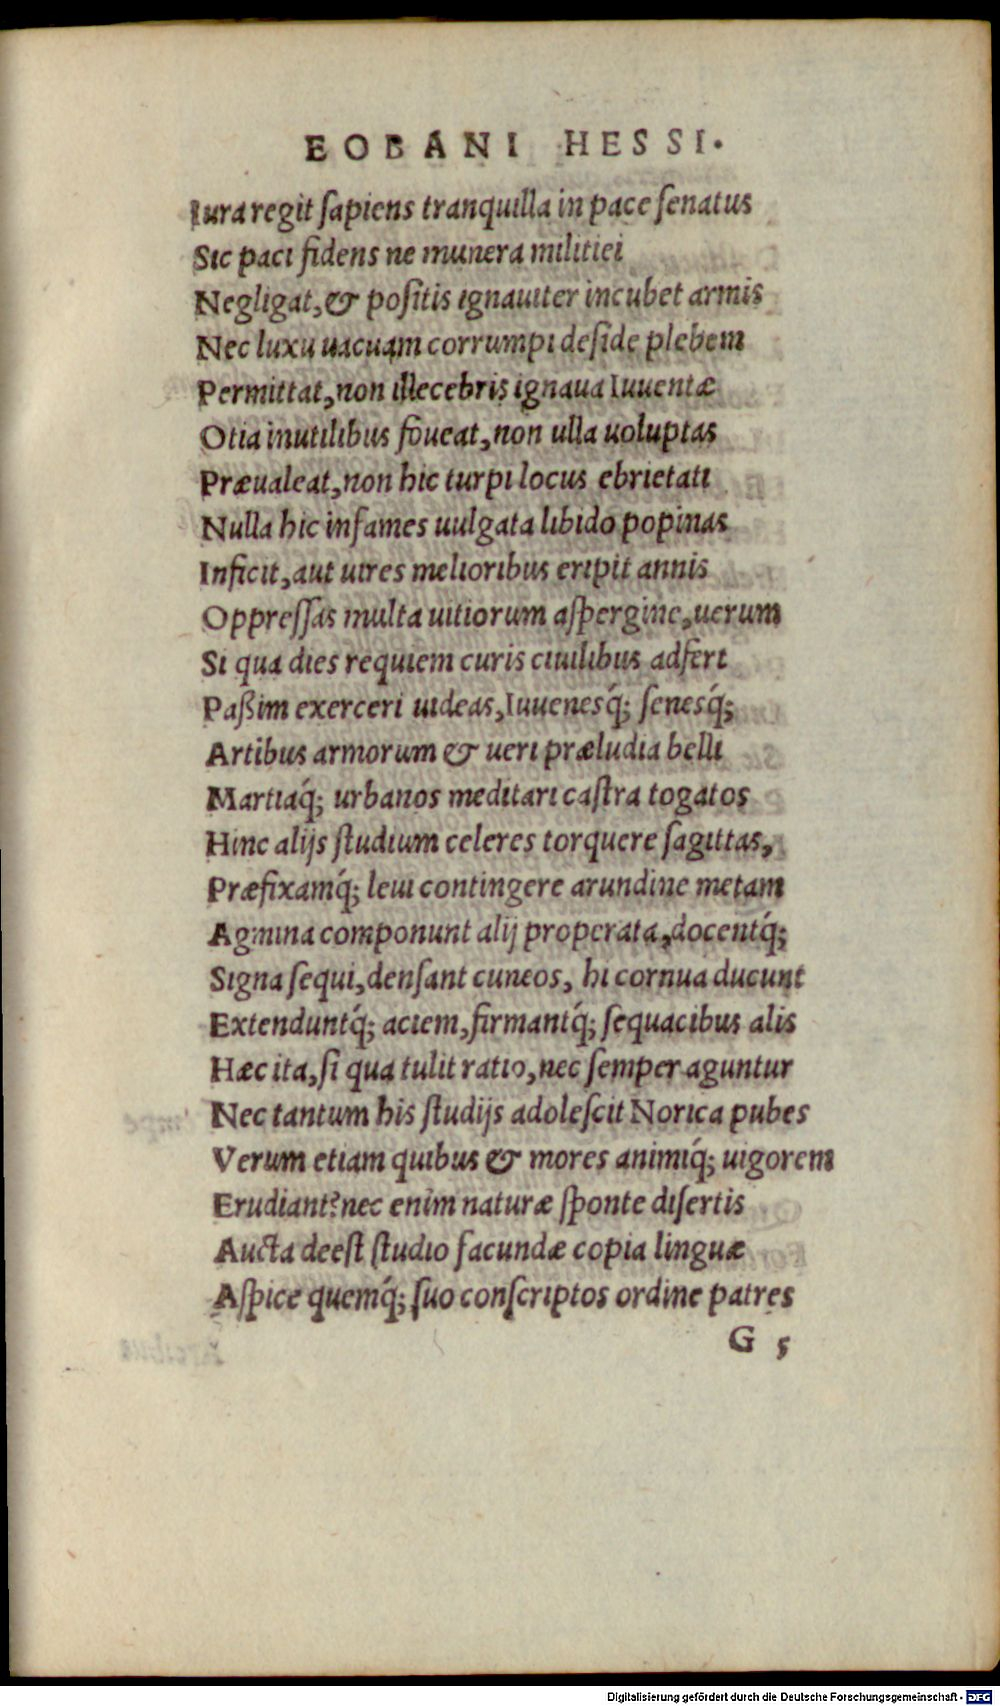 EOBANI HESSI.
Iura regit ſapiens tranquilla in pace ſenatus
Sic paci fidens ne munera militiei
Negligat, & poſitis ignauiter incubet armis
Nec luxu uacuam corrumpi deſide plebem
Permittat, non illecebris ignaua Iuuentæ
Otia inutilibus foueat, non ulla uoluptas
Præualeat, non hic turpi locus ebrietati
Nulla hic infames uulgata libido popinas
Inficit, aut uires melioribus eripit annis
Oppreſſas multa uitiorum aſpergine, uerum
Si qua dies requiem curis ciuilibus adfert
Paßim exerceri uideas, Iuuenesq́; ſenesq́;
Artibus armorum & ueri præludia belli
Martiaq́; urbanos meditari caſtra togatos
Hinc alijs ſtudium celeres torquere ſagittas,
Præfixamq́; leui contingere arundine metam
Agmina componunt alij properata, docentq́;
Signa ſequi, denſant cuneos, hi cornua ducunt
Extenduntq́; aciem, firmantq́; ſequacibus alis
Hæc ita, ſi qua tulit ratio, nec ſemper aguntur
Nec tantum his ſtudijs adoleſcit Norica pubes
Verum etiam quibus & mores animiq́; uigorem
Erudiant? nec enim naturæ ſponte diſertis
Aucta deeſt ſtudio facundæ copia linguæ
Aſpice quemq́; ſuo conſcriptos ordine patres
G 5
Digitalisierung gefördert durch die Deutsche Forschungsgemeinschaft - DFG